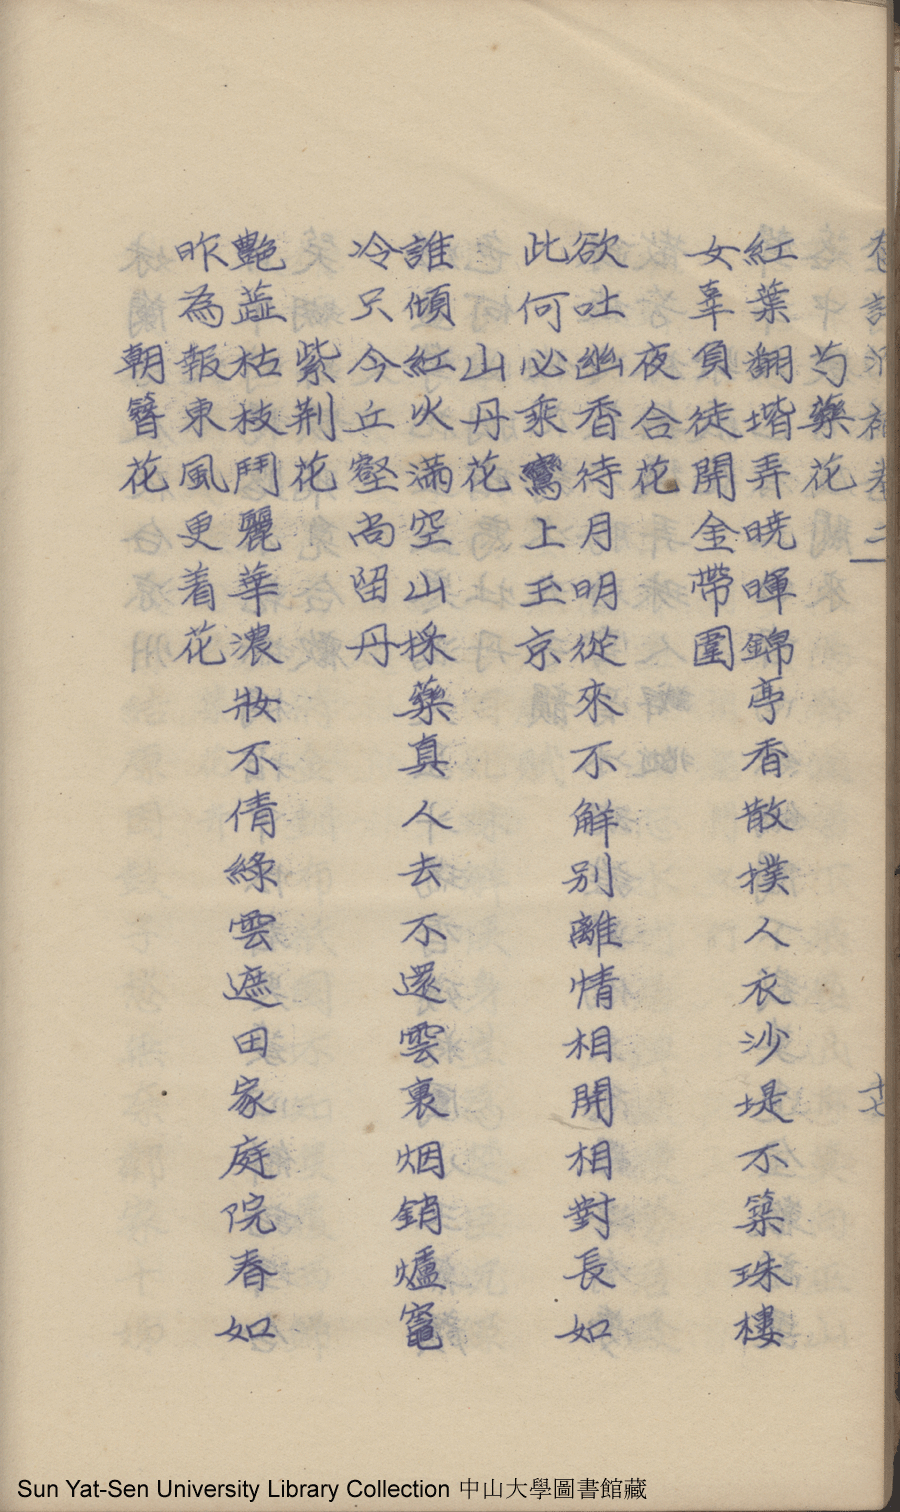 卷二
十七
芍藥花
紅葉翻堦弄曉暉錦亭香散撲人衣沙堤不築珠樓
女辜負徒開金帶圍
夜合花
欲吐幽香待月明從來不解別離情相開相對長如
此何必乘鸞上玉京
山丹花
誰傾紅火滿空山採藥真人去不還雲裏烟銷爐竈
冷只今丘壑尚留丹
紫荆花
艷蕋枯枝鬥麗華濃妝不倩綠雲遮田家庭院春如
昨為報東風更着花
朝簪花
Sun Yat-Sen University Library Collection 中山大學圖書館藏